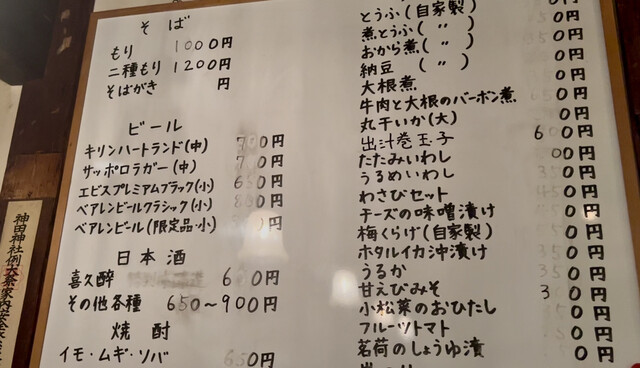 そば
もり 1000円
二種もり 1200円
そばがき 円
ビール
キリンハートランド(中) 700円
サッポロラガー(中) 円
エビスプレミアムブラック(小) 円
ベアレンビールクラシック(小) 円
ベアレンビール(限定品・小) 円
日本酒
喜久酔 円
その他各種 650〜900円
焼酎
イモ・ムギ・ソバ 650円
とうふ(自家製) 0円
煮とうふ(〃) 0円
おから煮(〃) 0円
納豆(〃) 0円
大根煮 0円
牛肉と大根のバーボン煮 0円
丸干いか(大) 0円
出汁巻玉子 600円
たたみいわし 00円
うるめいわし 0円
わさびセット 0円
チーズの味噌漬け 0円
梅くらげ(自家製) 0円
ホタルイカ沖漬け 0円
うるか 0円
甘えびみそ 0円
小松菜のおひたし 0円
フルーツトマト 0円
茗荷のしょうゆ漬 0円
神田神社例大祭家内安全